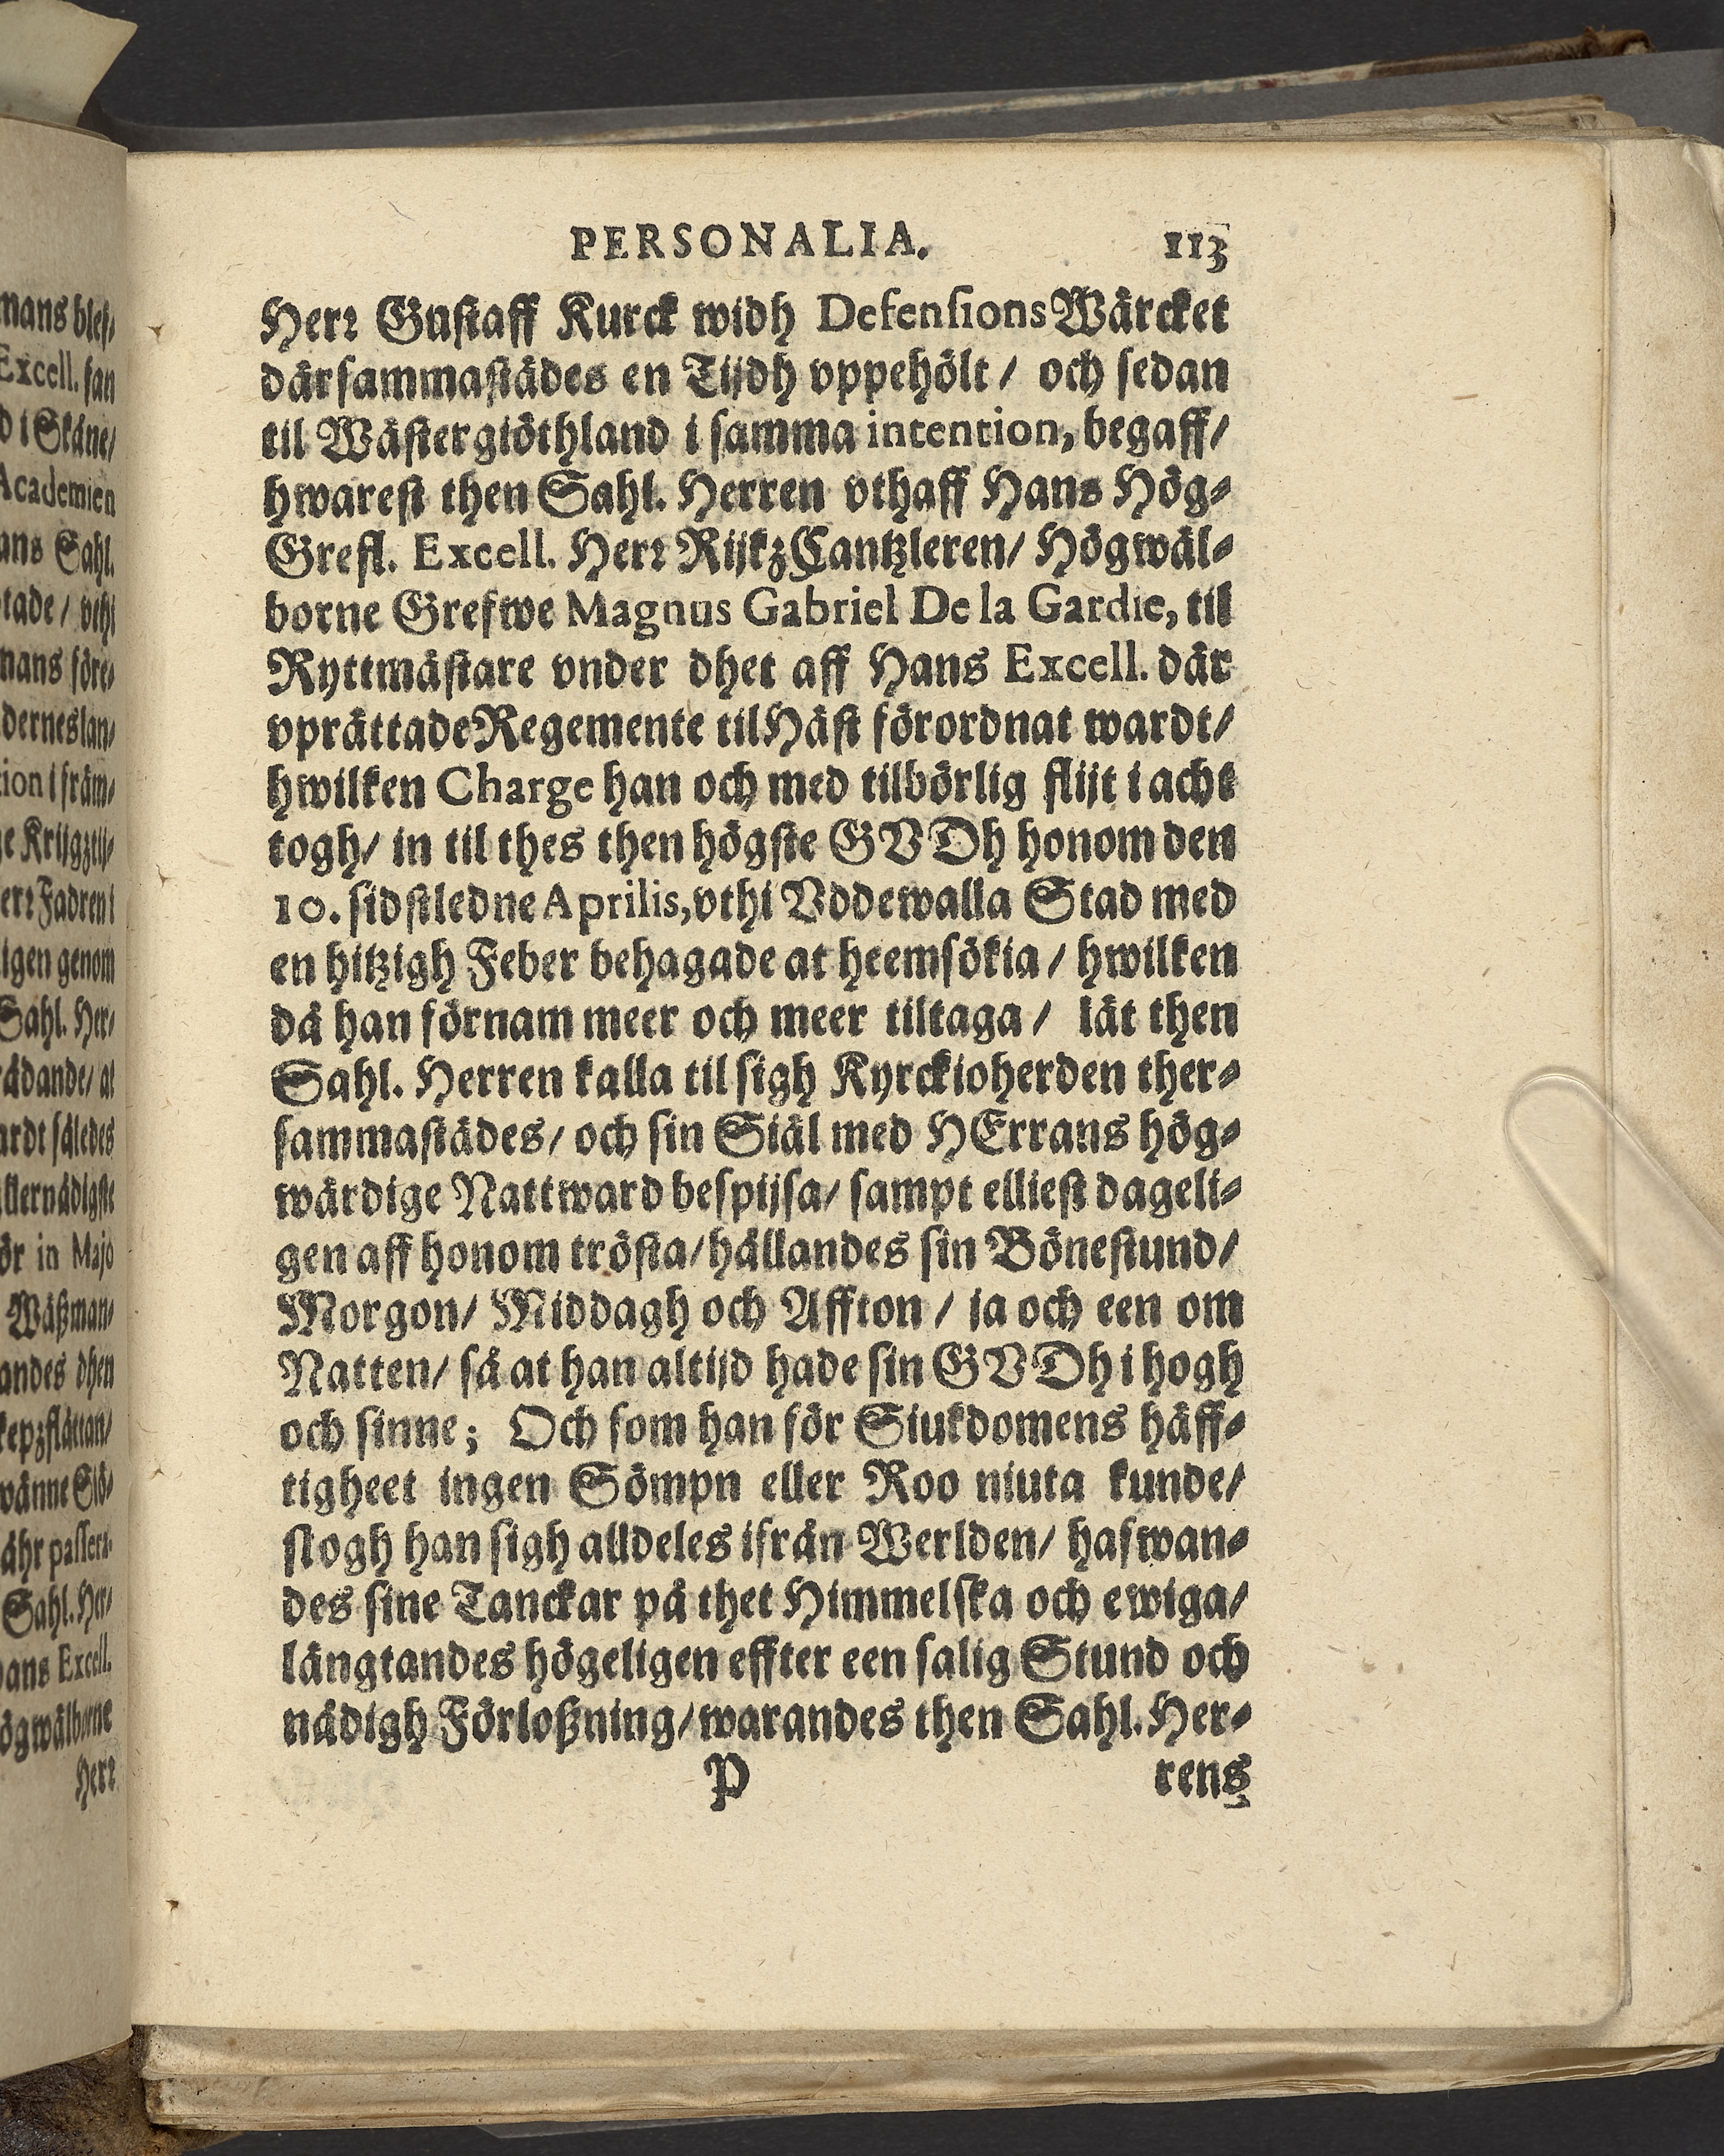 PERSONALIA. 113
Herr Gustaff Kurck widh Defensions Wärcket
därsammastädes en Tijdh vppehölt / och sedan
til Wästergiöthland i samma intention, begaff /
hwarest then Sahl. Herren vthaff Hans Hög-
Grefl. Excell. Herr RijkzCantzleren / Högwäl-
borne Grefwe Magnus Gabriel De la Gardie, til
Ryttmästare vnder dhet aff Hans Excell. där
vprättade Regemente til Häst förordnat wardt /
hwilken Charge han och med tilbörlig flijt i acht
togh / in til thes then högste GVDh honom den
10. sidstledne Aprilis, vthi Vddewalla Stad med
en hitzigh Feber behagade at heemsökia / hwilken
då han förnam meer och meer tiltaga / lät then
Sahl. Herren kalla til sigh Kyrckioherden ther-
sammastädes / och sin Siäl med HErrans hög-
wärdige Nattward bespijsa / sampt elliest dageli-
gen aff honom trösta / hållandes sin Bönestund /
Morgon / Middagh och Affton / ja och een om
Natten / så at han altijd hade sin GVDh i hogh
och sinne; Och som han för Siukdomens häff-
tigheet ingen Sömpn eller Roo niuta kunde /
slogh han sigh alldeles ifrån Werlden / hafwan-
des sine Tanckar på thet Himmelska och ewiga /
längtandes högeligen effter een salig Stund och
nådigh Förloßning / warandes then Sahl. Her-
P rens
mans
Excell.
i Skåne /
Academien
Sahl.
genom
Sahl. Her /
således
in Majo
andes dhen
Sahl. Her /
Excell.
Herr